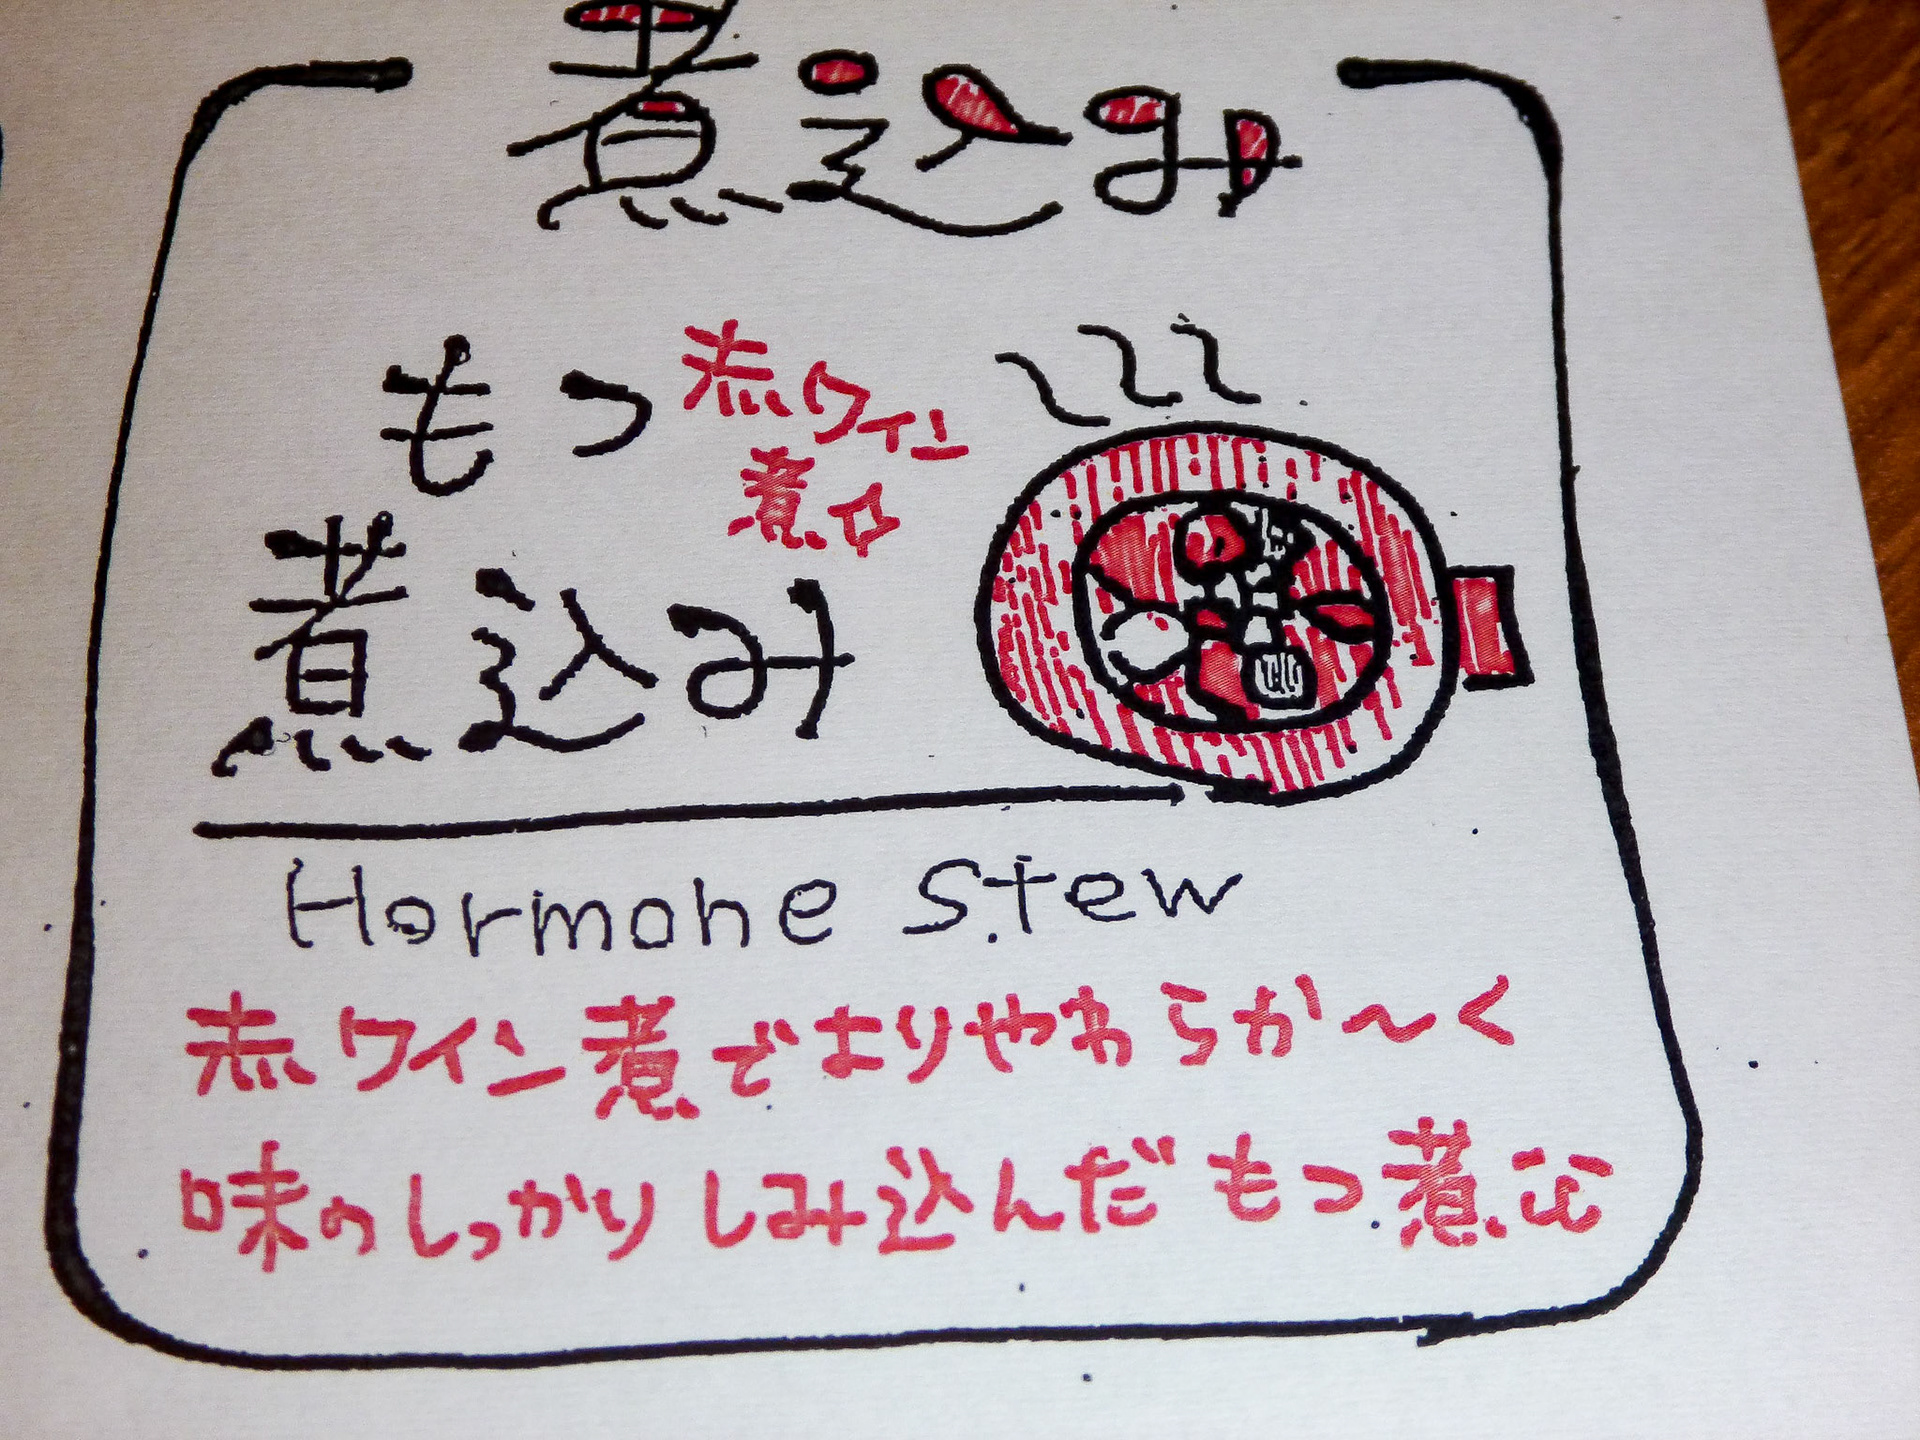 煮込み
もつ
赤ワイン
煮
煮込み
Hormone Stew
赤ワイン煮でよりやわらか〜く
味のしっかりしみ込んだもつ煮込